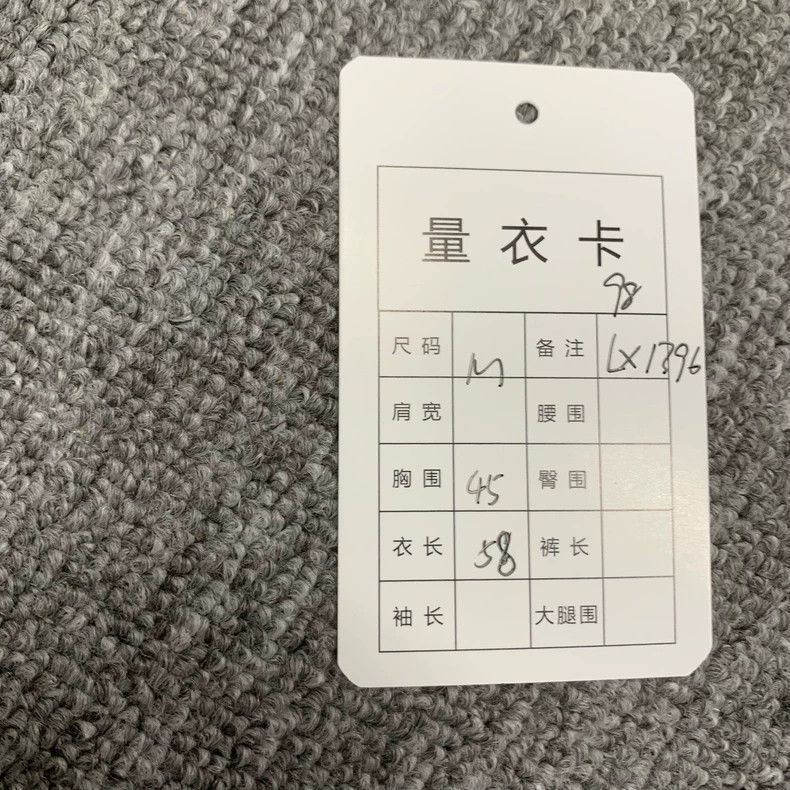 量衣卡
98
尺码 M 备注 LX1396
肩宽 腰围
胸围 45 臀围
衣长 58 裤长
袖长 大腿围